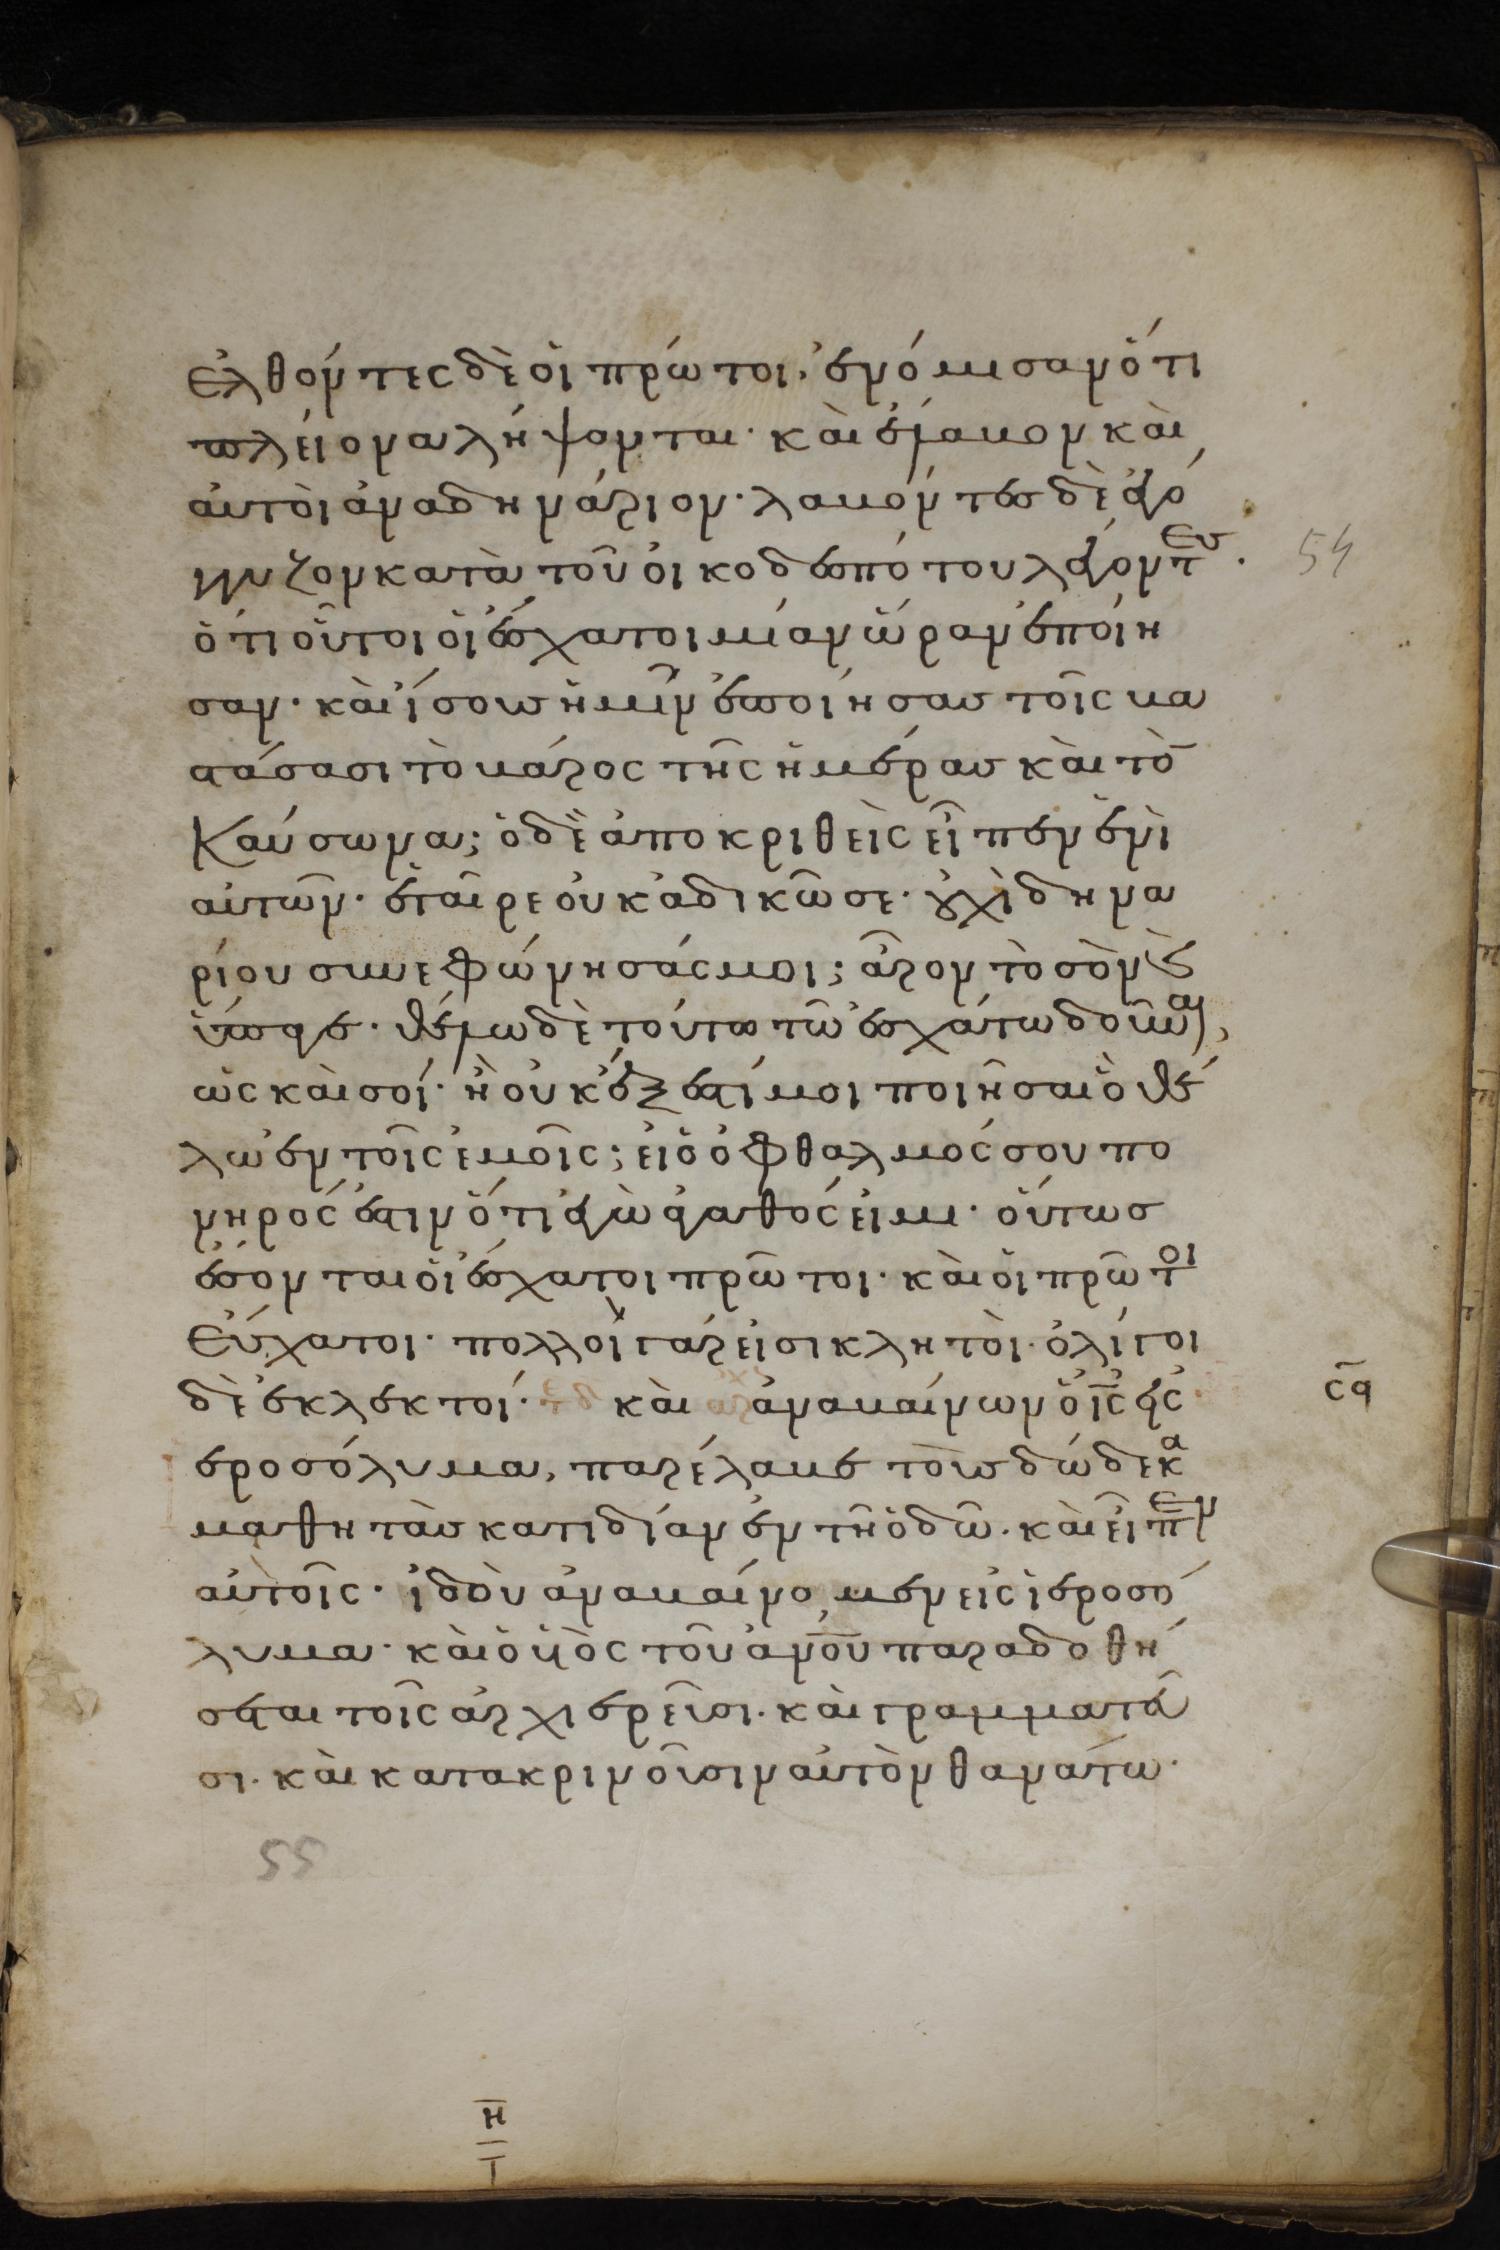 ἐλθόντες δὲ οἱ πρώτοι, ἐνόμισαν ὅτι
πλείονα λήψονται· καὶ ἔλαβον καὶ
αὐτοὶ ἀνὰ δηνάριον· λαβόντες δὲ ἐγό
γγυζον κατὰ τοῦ οἰκοδεσπότου λέγοντ ες·
54
ὅτι οὗτοι οἱ ἔσχατοι μίαν ὥραν ἐποίη
σαν· καὶ ἴσους ἡμῖν ἐποίησας τοῖς βα
στάσασι τὸ βάρος τῆς ἡμέρας καὶ τὸ̅
καύσωνα; ὁ δὲ ἀποκριθεὶς εἶπεν ἑνὶ
αὐτῶν· ἑταῖρε οὐκ ἀδικῶ σε· οὐχὶ δηνα
ρίου συνεφώνησάς μοι; ἆρον τὸ σὸν ϗ
ὕπαγε· θέλω δὲ τούτω τῶ ἐσχάτω δοῦναι,
ὡς καὶ σοί· ἢ οὐκ ἔξεστί μοι ποιῆσαι ὃ θέ
λω ἐν τοῖς ἐμοῖς; εἰ ὁ ὀφθαλμός σου πο
νηρός ἐστιν ὅτι ἐγὼ ἀγαθός εἰμι· οὕτως
ἔσονται οἱ ἔσχατοι πρῶτοι· καὶ οἱ πρῶτοι
ἔσχατοι· πολλοὶ γάρ εἰσι κλητοὶ· ὀλίγοι
δὲ ἐκλεκτοί· καὶ ἀναβαίνων ὁ ι̅ς̅ εἰς
σ̅α̅
ἱεροσόλυμα, παρέλαβε τοὺς δώδεκα
μαθητὰς κατιδίαν ἐν τῆ ὁδῶ· καὶ εἶπεν
αὐτοῖς· ἰδοὺ ἀναβαίνομεν εἰς ἱεροσό
λυμα· καὶ ὁ υἱὸς τοῦ ἀν̅ου̅ παραδοθή
σεται τοῖς ἀρχιερεῦσι· καὶ γραμματεῦ
σι· καὶ κατακρινοῦσιν αὐτὸν θανάτω·
55
η̅